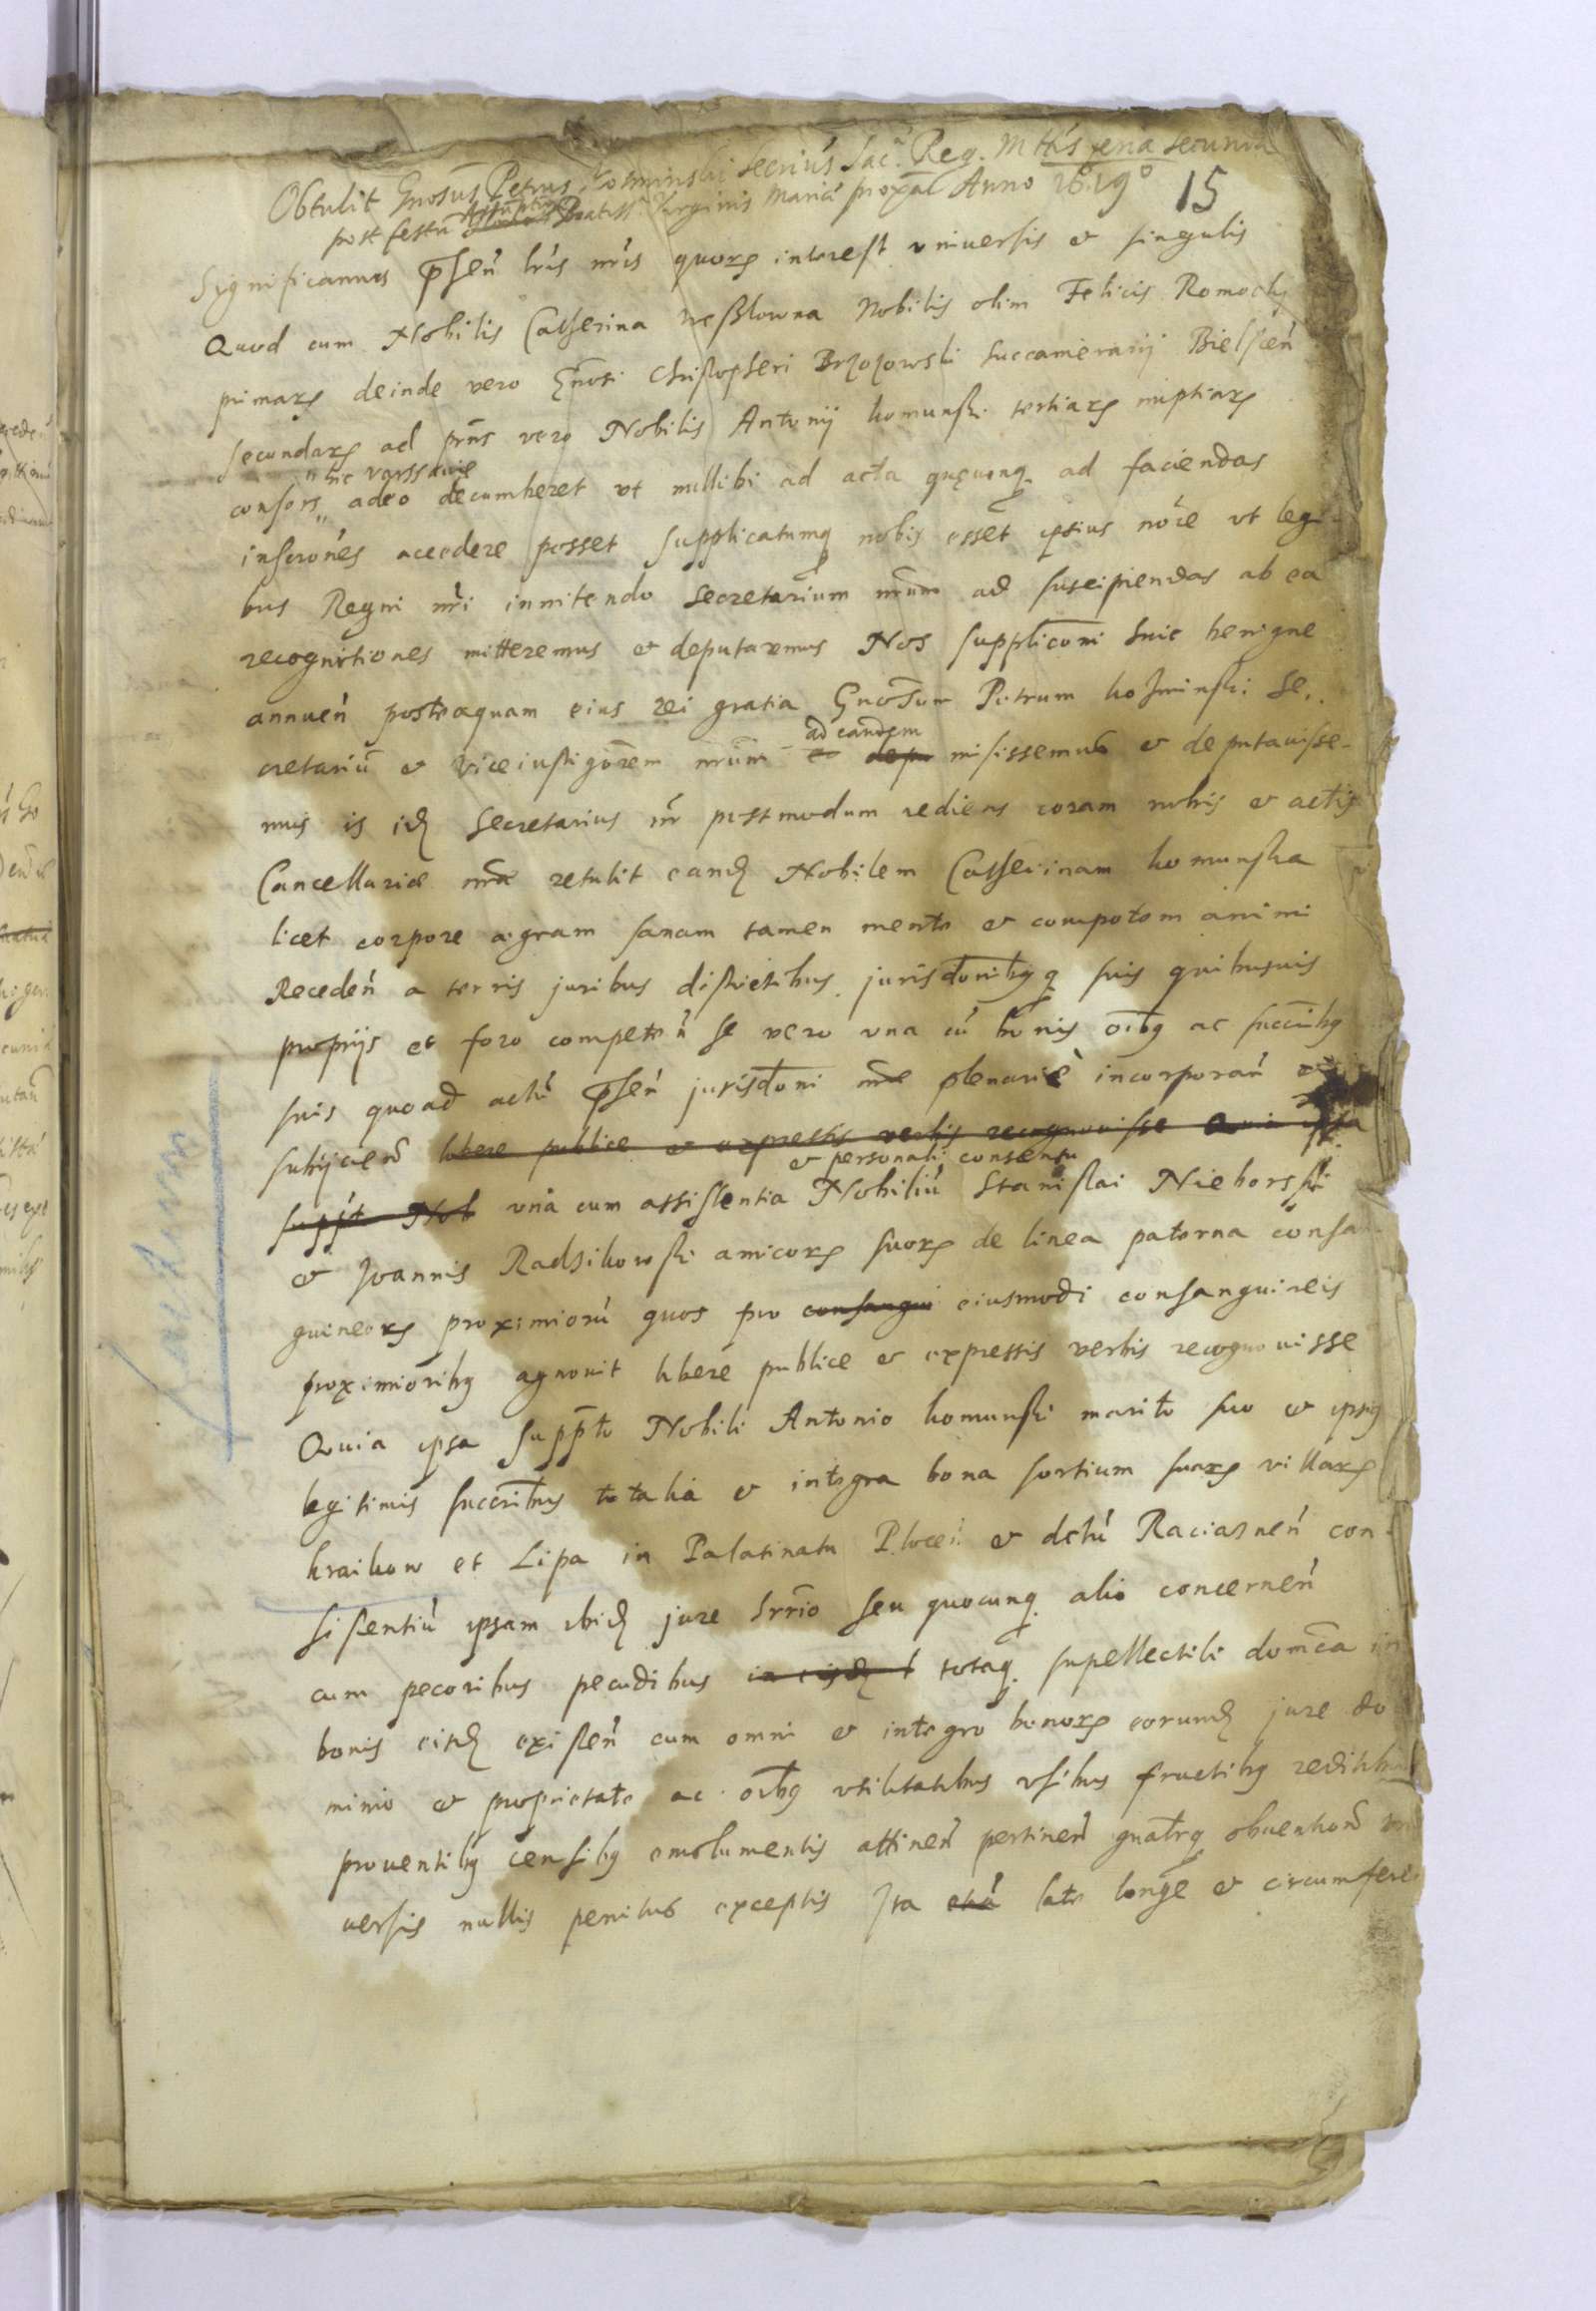 Obtulit Gnosus Petrus Kosminski Secrius Sac. Reg. Mttis feria secunda
post festu Assuptio: Beatiss: Virginis Mariæ proxal Anno 1619° 15
Significamus psen lris nris quorz interest vniuersis et singulis
Quod cum Nobilis Catherina Nobilis olim Felicis Romocki
primarz deinde vero Gnosi Christopheri Brzozowski Succamerarij Bielscen
secundarz ad prns vero Nobilis Antonij komunski tertiarz nuptiarz
hic varssauiæ
consors adeo decumberet vt nullibi ad acta quęcunq. ad faciendas
inscrones accedere posset supplicatumq nobis esset ipsius noie vt legi-
bus Regni nri innitendo Secretarium nrum ad suscipiendas ab ea
recognitiones mitteremus et deputaremus Nos supplicōni huic benigne
annuen posteaquam eius rei gratia Gnosum Petrum kosminski Se.
ad eandem
cretariū et Viceinstigorem nrum et depu misissemus et deputauisse-
mus is idz Secretarius nr postmodum rediens coram nobis et actis
Cancellariæ nræ retulit eandz Nobilem Catherinam komunska
licet corpore ægram sanam tamen mente et compotem animi
Receden a terris juribus districtibus jurisdonibq q suis quibusuis
propijs et foro competen se vero vna cū bonis oībq ac succrībq
suis quoad actū psen jurisdoni nræ plenariè incorporan et
subijcien libere publice et expressis verbis recognouisse Quia ipsa
et personali consensu
suppt Nob vnà cum assistentia Nobiliū Stanislai Nieborski
et Joannis Radzikowski amicorz suorz de linea paterna consan-
guineorz proximiorū quos pro consangui eiusmodi consanguineis
proximioribq agnouit libere publice et expressis verbis recognouisse
Quia ipsa suppto Nobili Antonio komunski marito suo et ipsiq
legitimis succribus totalia et integra bona sortium suarz villarz
kraikow et Lipa in Palatinatu Plocen et dctū Raciaznen con-
sistentiū ipsam ibidz jure hrrio seu quocunq alio concernen
cum pecoribus pecudibus in eisdz totaq supellectili domca in
bonis eisdz existen cum omni et integro bonorz eorundz jure do
minio et proprietate ac oībq vtilitatibus vsibus fructibq reditibus
prouentibq censibq emolumentis attinen pertinen gnatrq obuention vni
uersis nullis penitus exceptis Ita late longe et circumfere